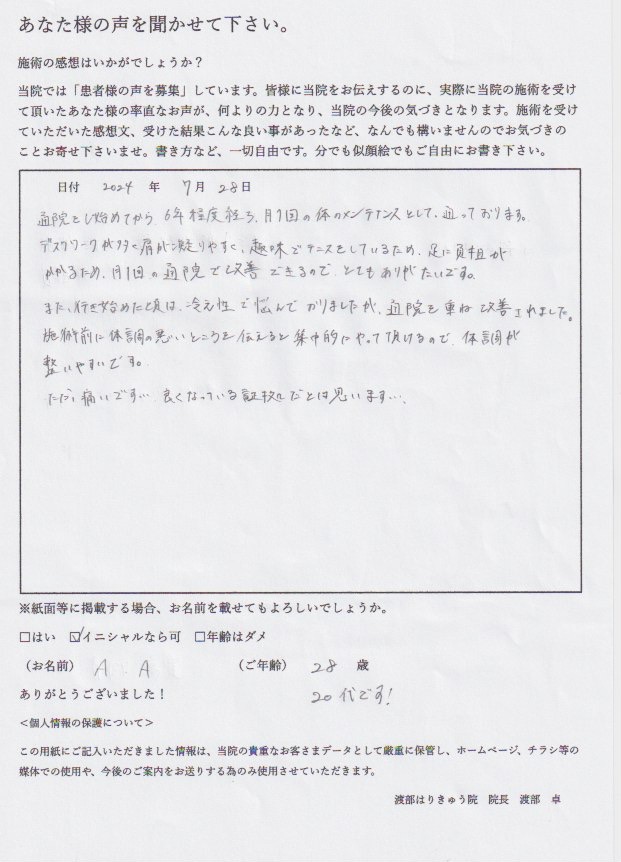 あなた様の声を聞かせて下さい。
施術の感想はいかがでしょうか？
当院では「患者様の声を募集」しています。皆様に当院をお伝えするのに、実際に当院の施術を受け
て頂いたあなた様の率直なお声が、何よりの力となり、当院の今後の気づきとなります。施術を受け
ていただいた感想文、受けた結果こんな良い事があったなど、なんでも構いませんのでお気づきの
ことお寄せ下さいませ。書き方など、一切自由です。分でも似顔絵でもご自由にお書き下さい。
日付 2024 年 7月 28日
通院をし始めてから、6年程度経ち、月1回の体のメンテナンスとして、通っております。
デスクワークが多く肩が凝りやすく、趣味でテニスをしているため、足に負担が
かかるため、月1回の通院で改善できるので、とてもありがたいです。
また、行き始めた頃は、冷え性で悩んでおりましたが、通院を重ね改善されました。
施術前に体調の悪いところを伝えると集中的にやって頂けるので、体調が
整いやすいです。
ただ、痛いです… 良くなっている証拠だとは思います…、
※紙面等に掲載する場合、お名前を載せてもよろしいでしょうか。
□はい ☑イニシャルなら可 □年齢はダメ
（お名前） A . A （ご年齢） 28 歳
ありがとうございました！ 20代です!
<個人情報の保護について>
この用紙にご記入いただきました情報は、当院の貴重なお客さまデータとして厳重に保管し、ホームページ、チラシ等の
媒体での使用や、今後のご案内をお送りする為のみ使用させていただきます。
渡部はりきゅう院 院長 渡部 卓